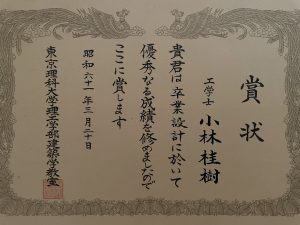 賞状
工学士 小林桂樹
貴君は卒業設計に於いて
優秀なる成績を修めましたので
ここに賞します
昭和六十一年三月二十日
東京理科大学理工学部建築学教室